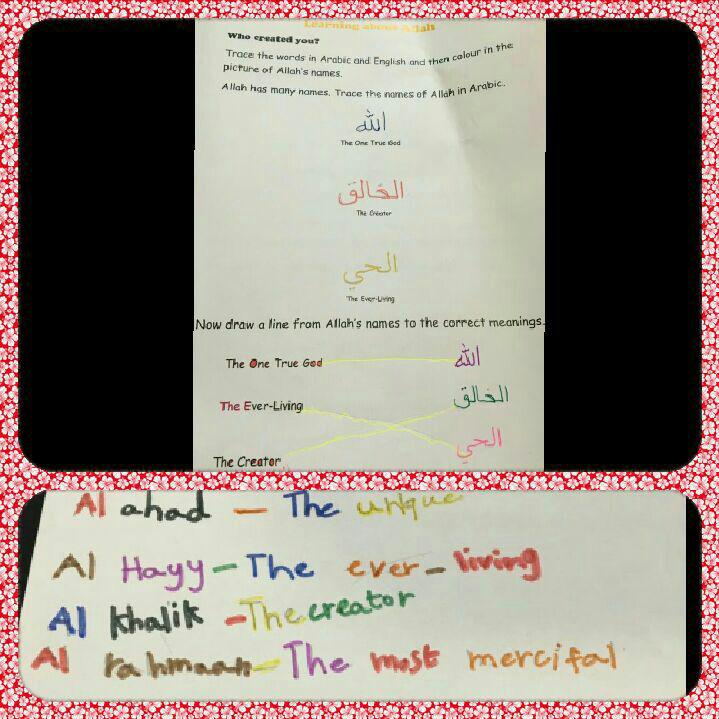 Learning about Allah
Who created you?
Trace the words in Arabic and English and then colour in the
picture of Allah's names.
Allah has many names. Trace the names of Allah in Arabic.
الله
The One True God
الخالق
The Creator
الحي
The Ever-Living
Now draw a line from Allah's names to the correct meanings.
The One True God الله
The Ever-Living الخالق
الحي
The Creator
Al ahad - The unique
Al Hayy - The ever-living
Al khalik - The creator
Al rahmaan - The most mercifal